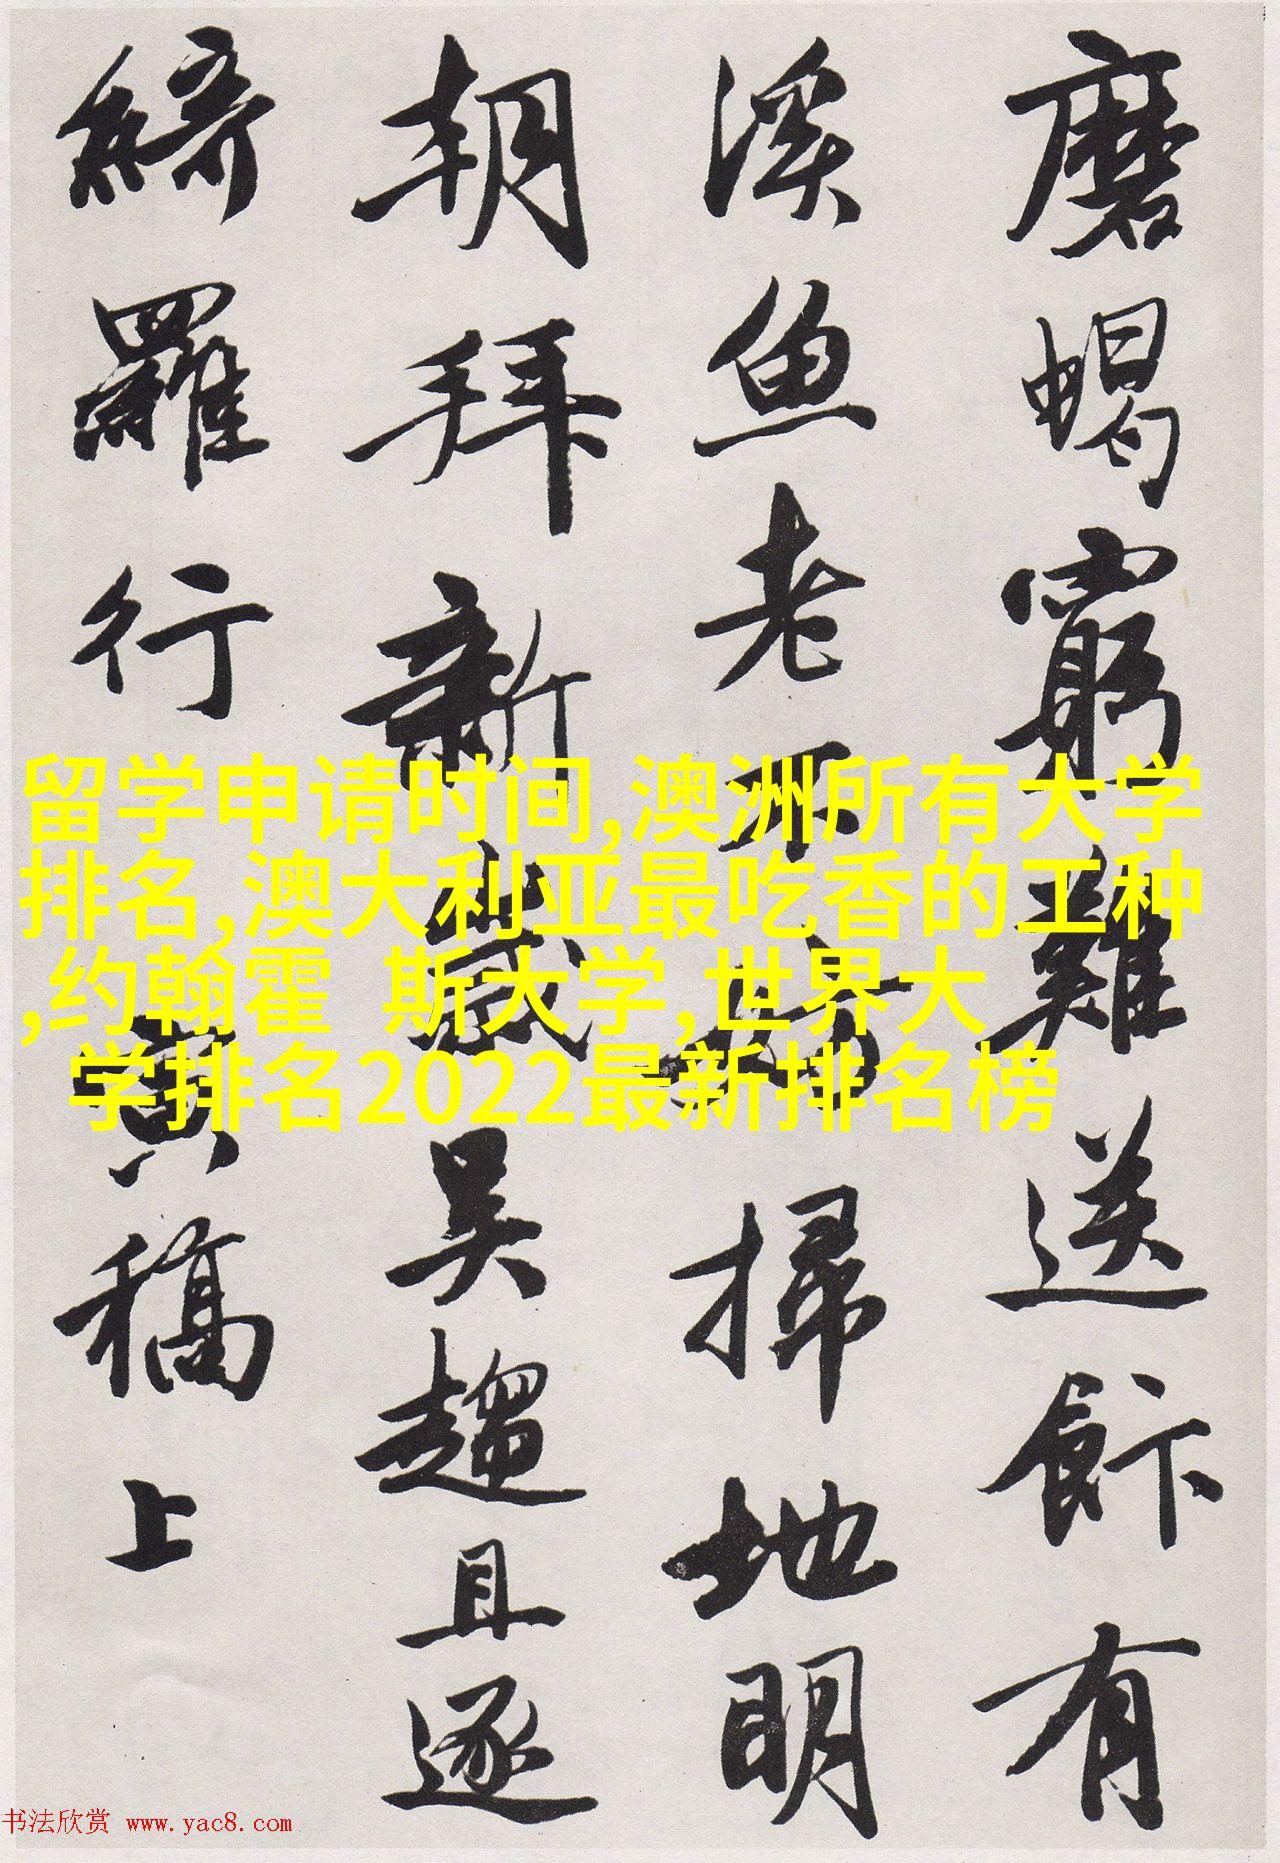 磨蝎窮難送餅有
溪魚老不妨掃地明
朝拜新歲吴趨且逐
綺羅行
寅稿上
留学申请时间,澳洲所有大学
排名,澳大利亚最吃香的工种
,约翰霍 斯大学,世界大
学排名2022最新排名榜
书法欣赏 www.yac8.com